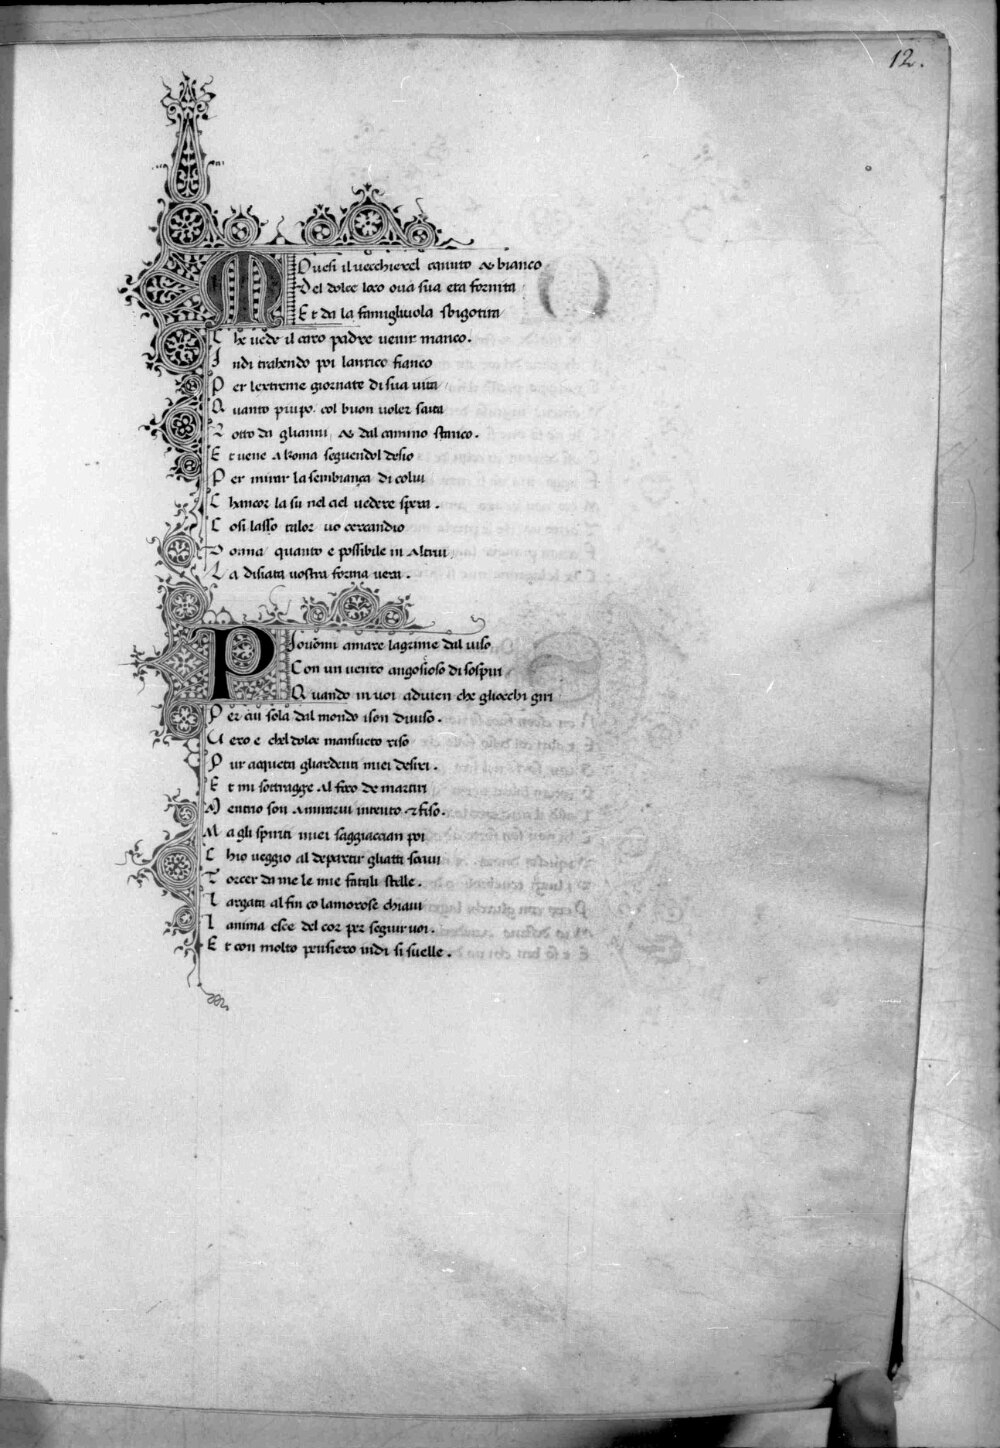 12.
Movesi il vecchierel canuto & bianco
Del dolce loco ova sua eta fornita
Et da la famigliuola sbigotita
Che vede il caro padre venir manco.
Indi trahendo poi lantico fianco
Per lextreme giornate di sua vita
Quanto piu po. col buon voler saita
Rotto da glianni, & dal camino stanco.
Et vene a Roma seguendol desio
Per mirar la sembianza di colui
Chancor la su nel ciel vedere spera.
Cosi lasso talor vo cercandio
Donna quanto e possibile in altrui
La disiata vostra forma vera.
Piovomi amare lagrime dal viso
Con un vento angosioso di sospiri
Quando in voi advien che gliocchi giri
Per cui sola dal mondo ison diviso.
Vero e chel dolce mansueto riso
Pur acqueta gliardenti miei desiri.
Et mi sottragge al foco de martiri
Mentrio son a mirarvi intento & fiso.
Ma gli spiriti miei saggiaccian poi
Chio veggio al departir gliatti soavi
Torcer da me le mie fatali stelle.
Largata al fin co lamorose chiavi
Lanima esce del cor per seguir voi.
Et con molto pensiero indi si suelle.